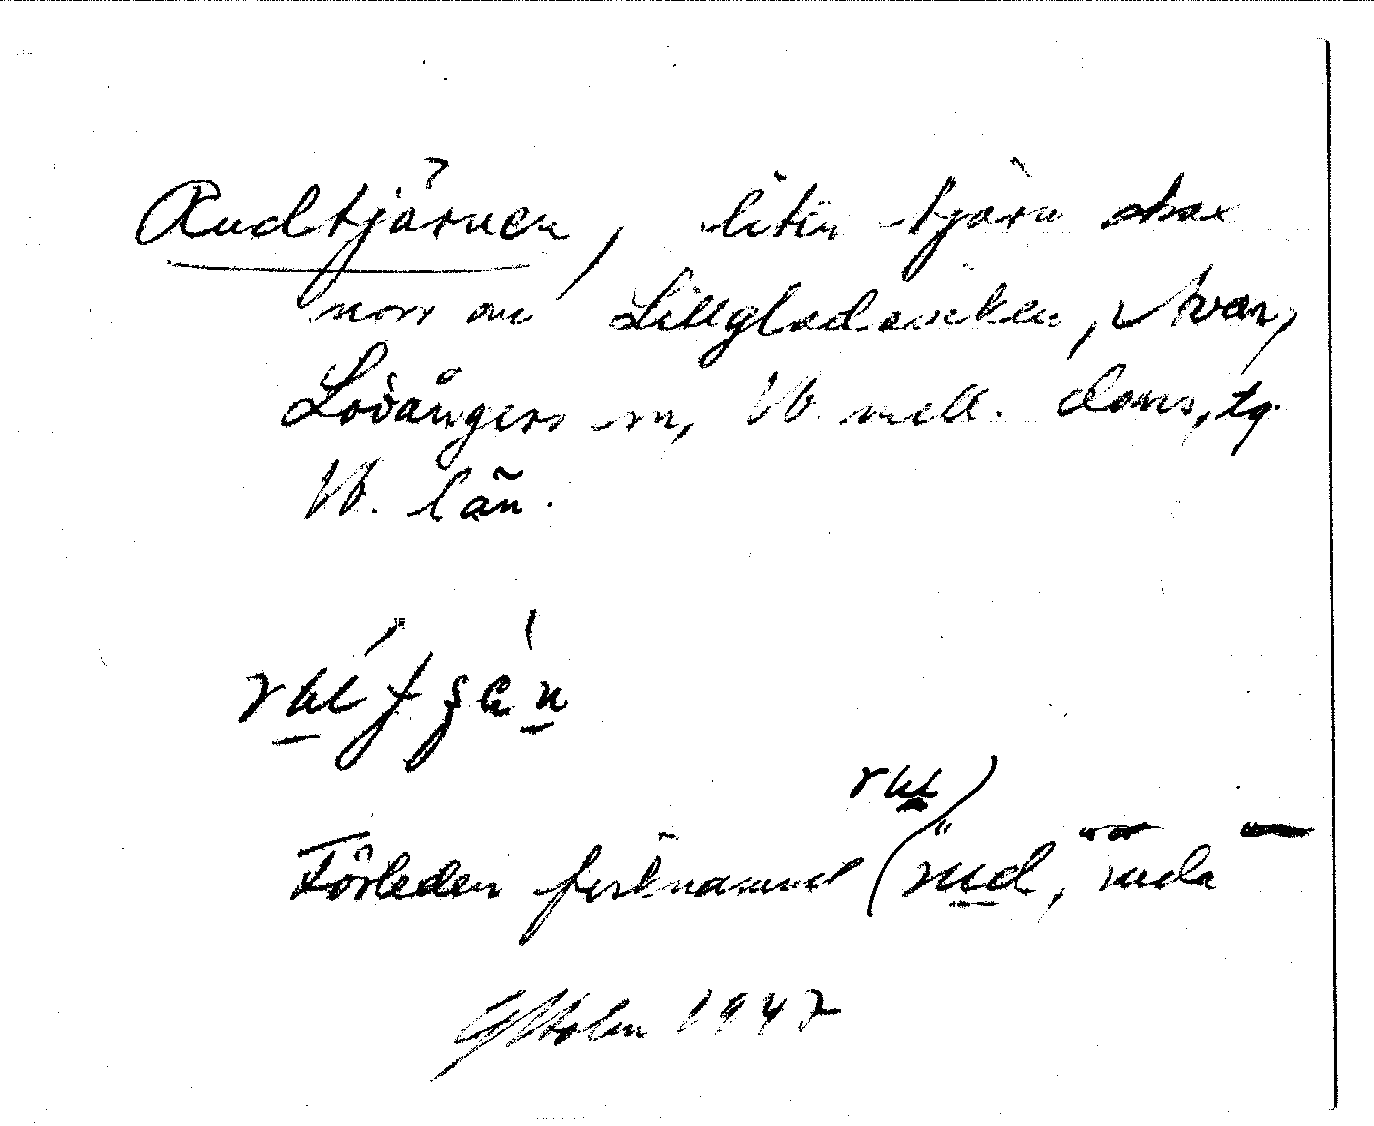 Rudtjärnen, liten tjärn strax
norr om Lillgladaviken, Avan,
Lövångers sn, Vb. mell. doms. tg.
Vb. län.
Förleden fisknamnet (rud, ruda
GHolm 1947